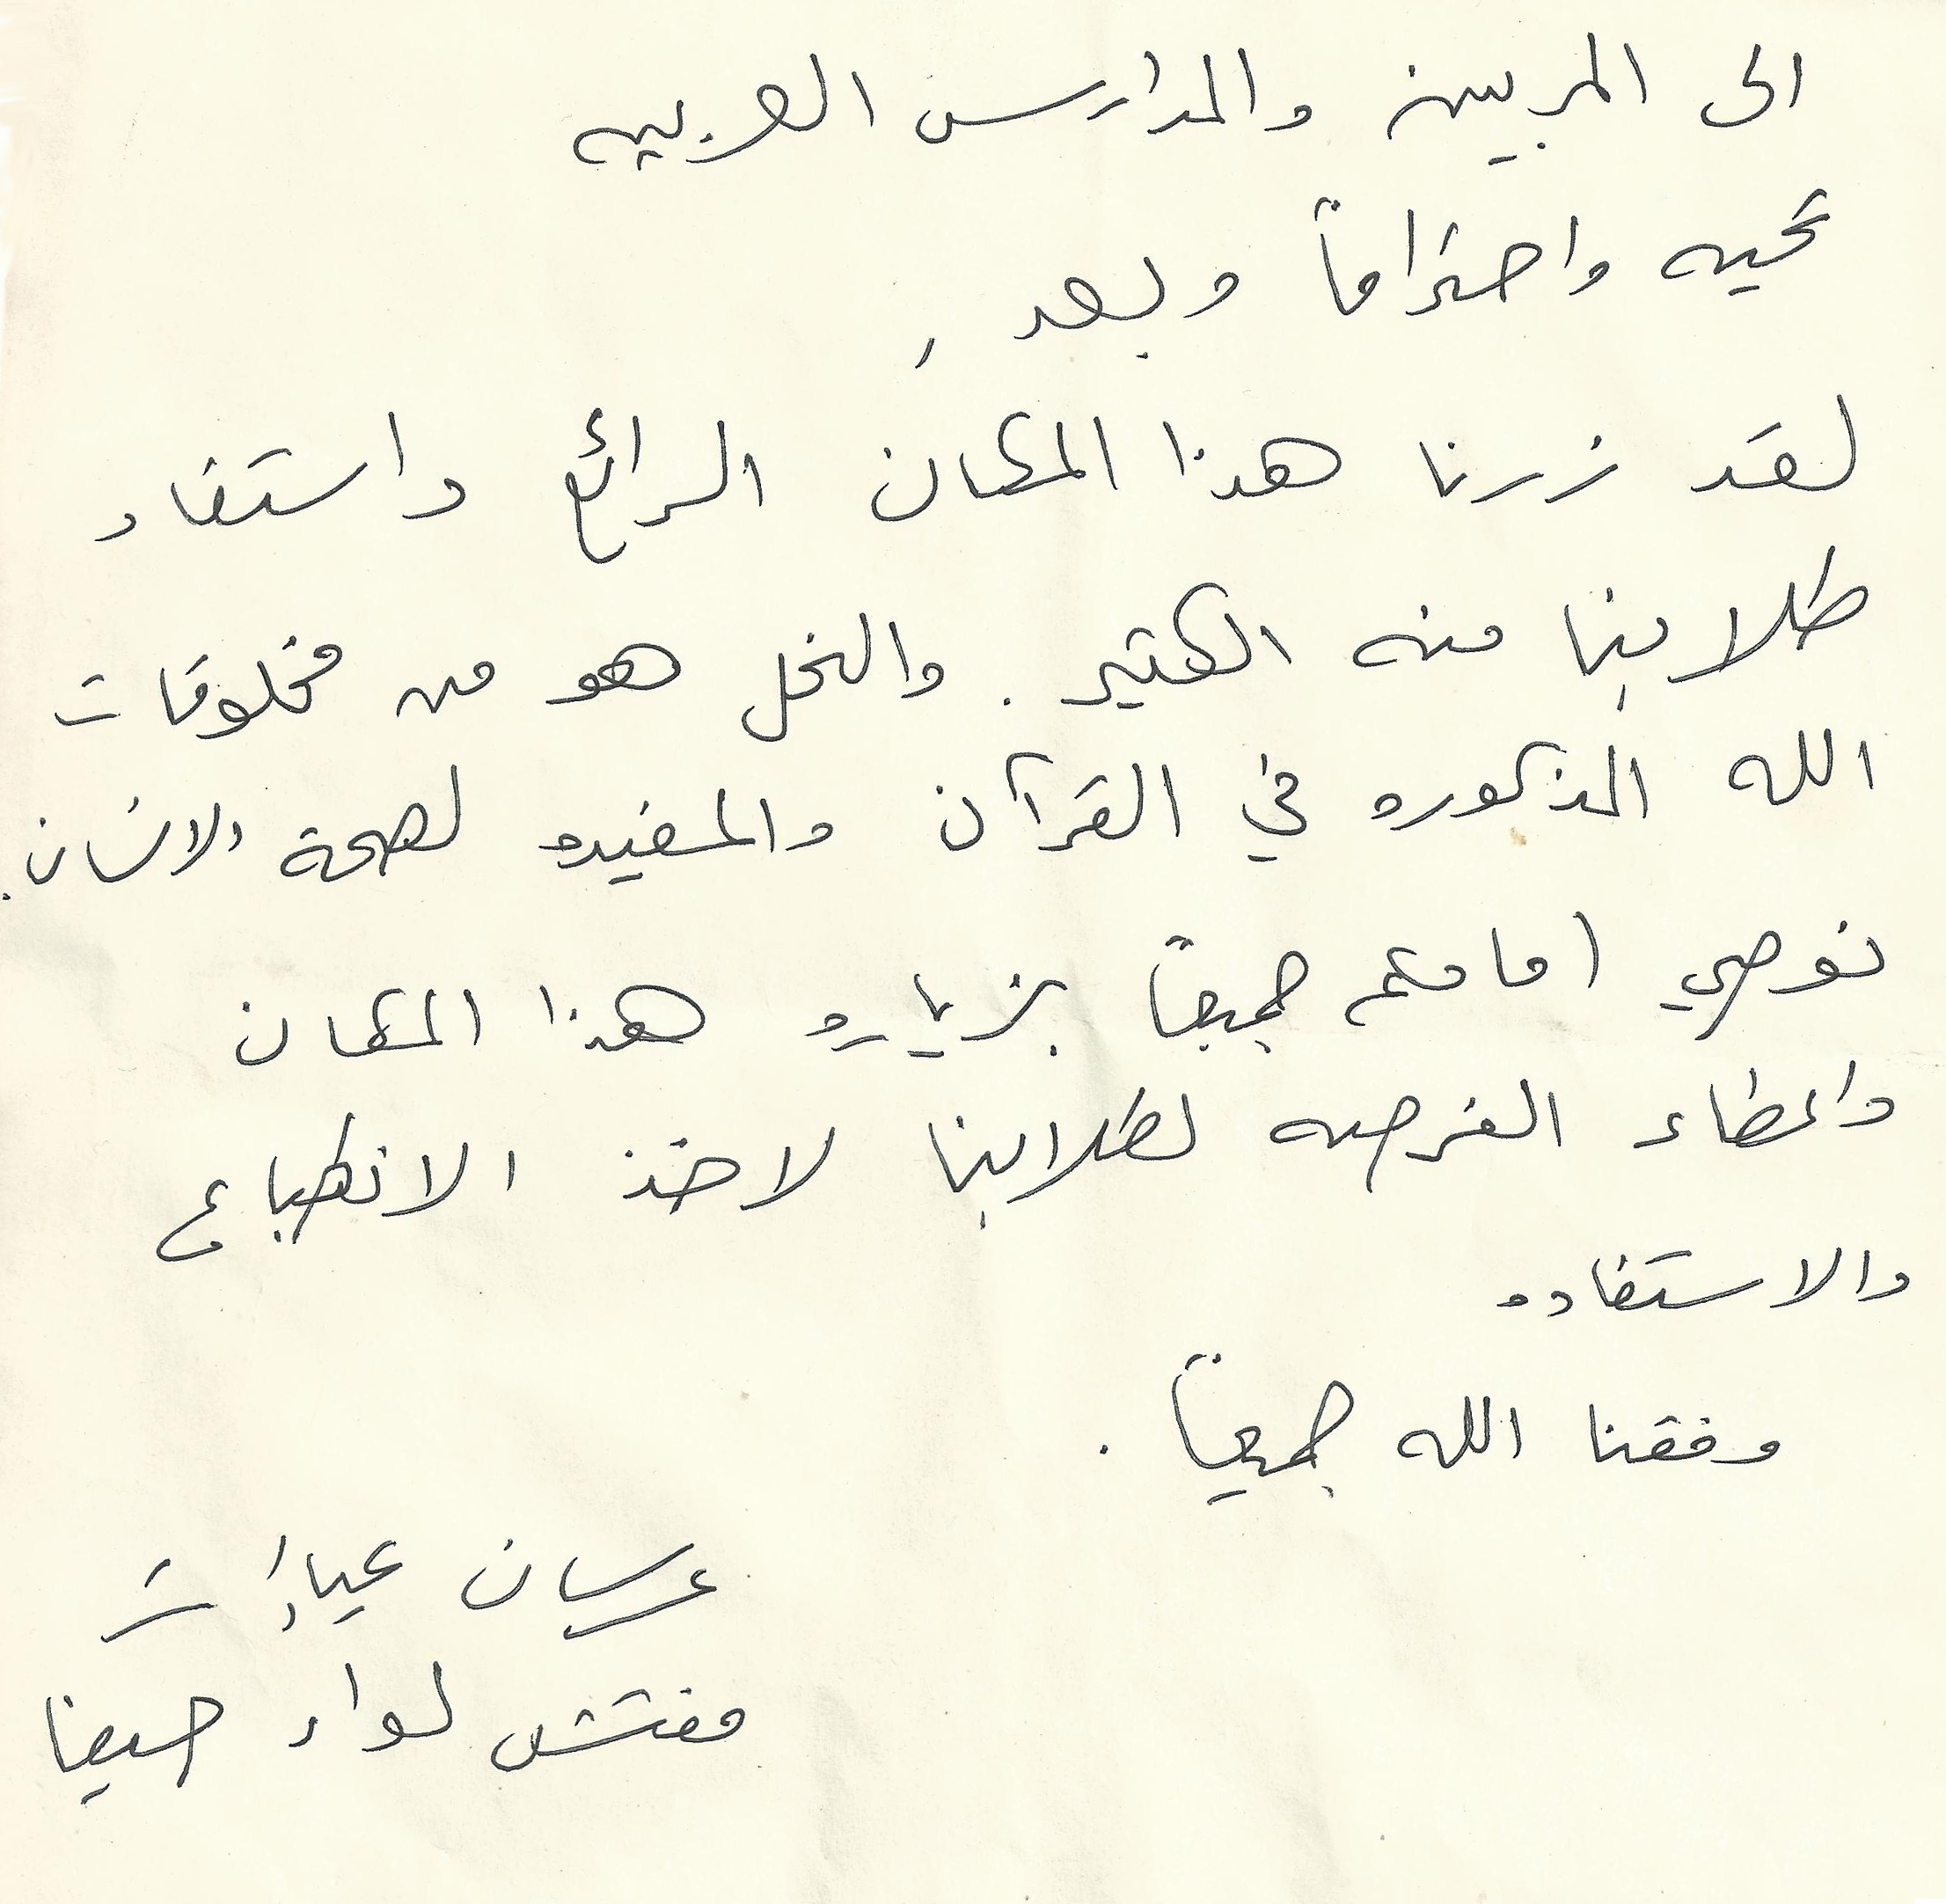 الى المربين والمدارس العربيه
تحيه واحتراماً وبعد ,
لقد زرنا هذا المكان الرائع واستفاد
طلابنا منه الكثير . والنحل هو من مخلوقات
الله المذكوره في القرآن والمفيده لصحة الانسان .
نوصي امامكم جميعاً بزياره هذا المكان
واعطاء الفرصه لطلابنا لاخذ الانطباع
والاستفاده
وفقنا الله جميعاً .
عرسان عيادات
مفتش لواء حيفا